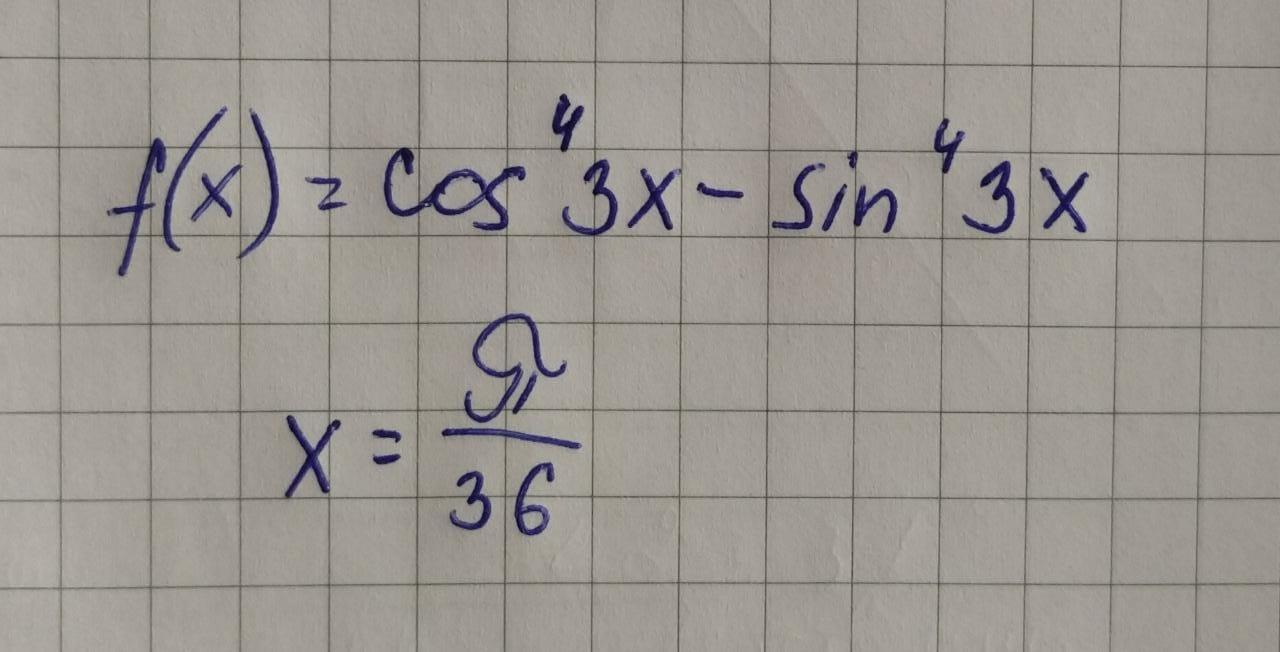 f(x) = cos⁴ 3x - sin⁴ 3x
x = π/36